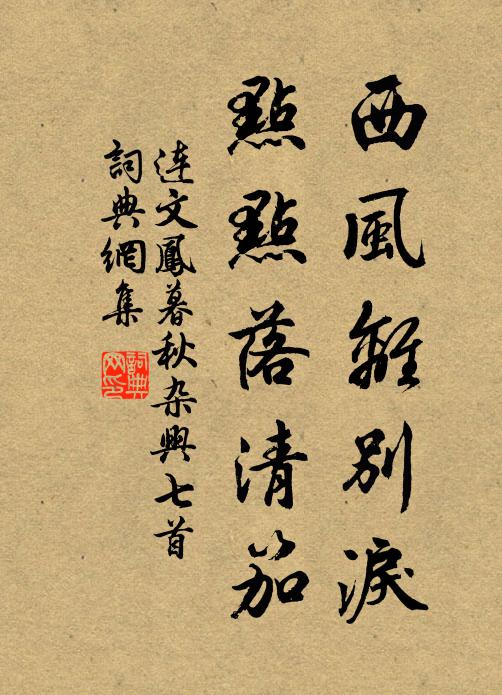 西風離別淚
點點落清笳
連文鳳暮秋杂興七首
詞典網集
詞典网印